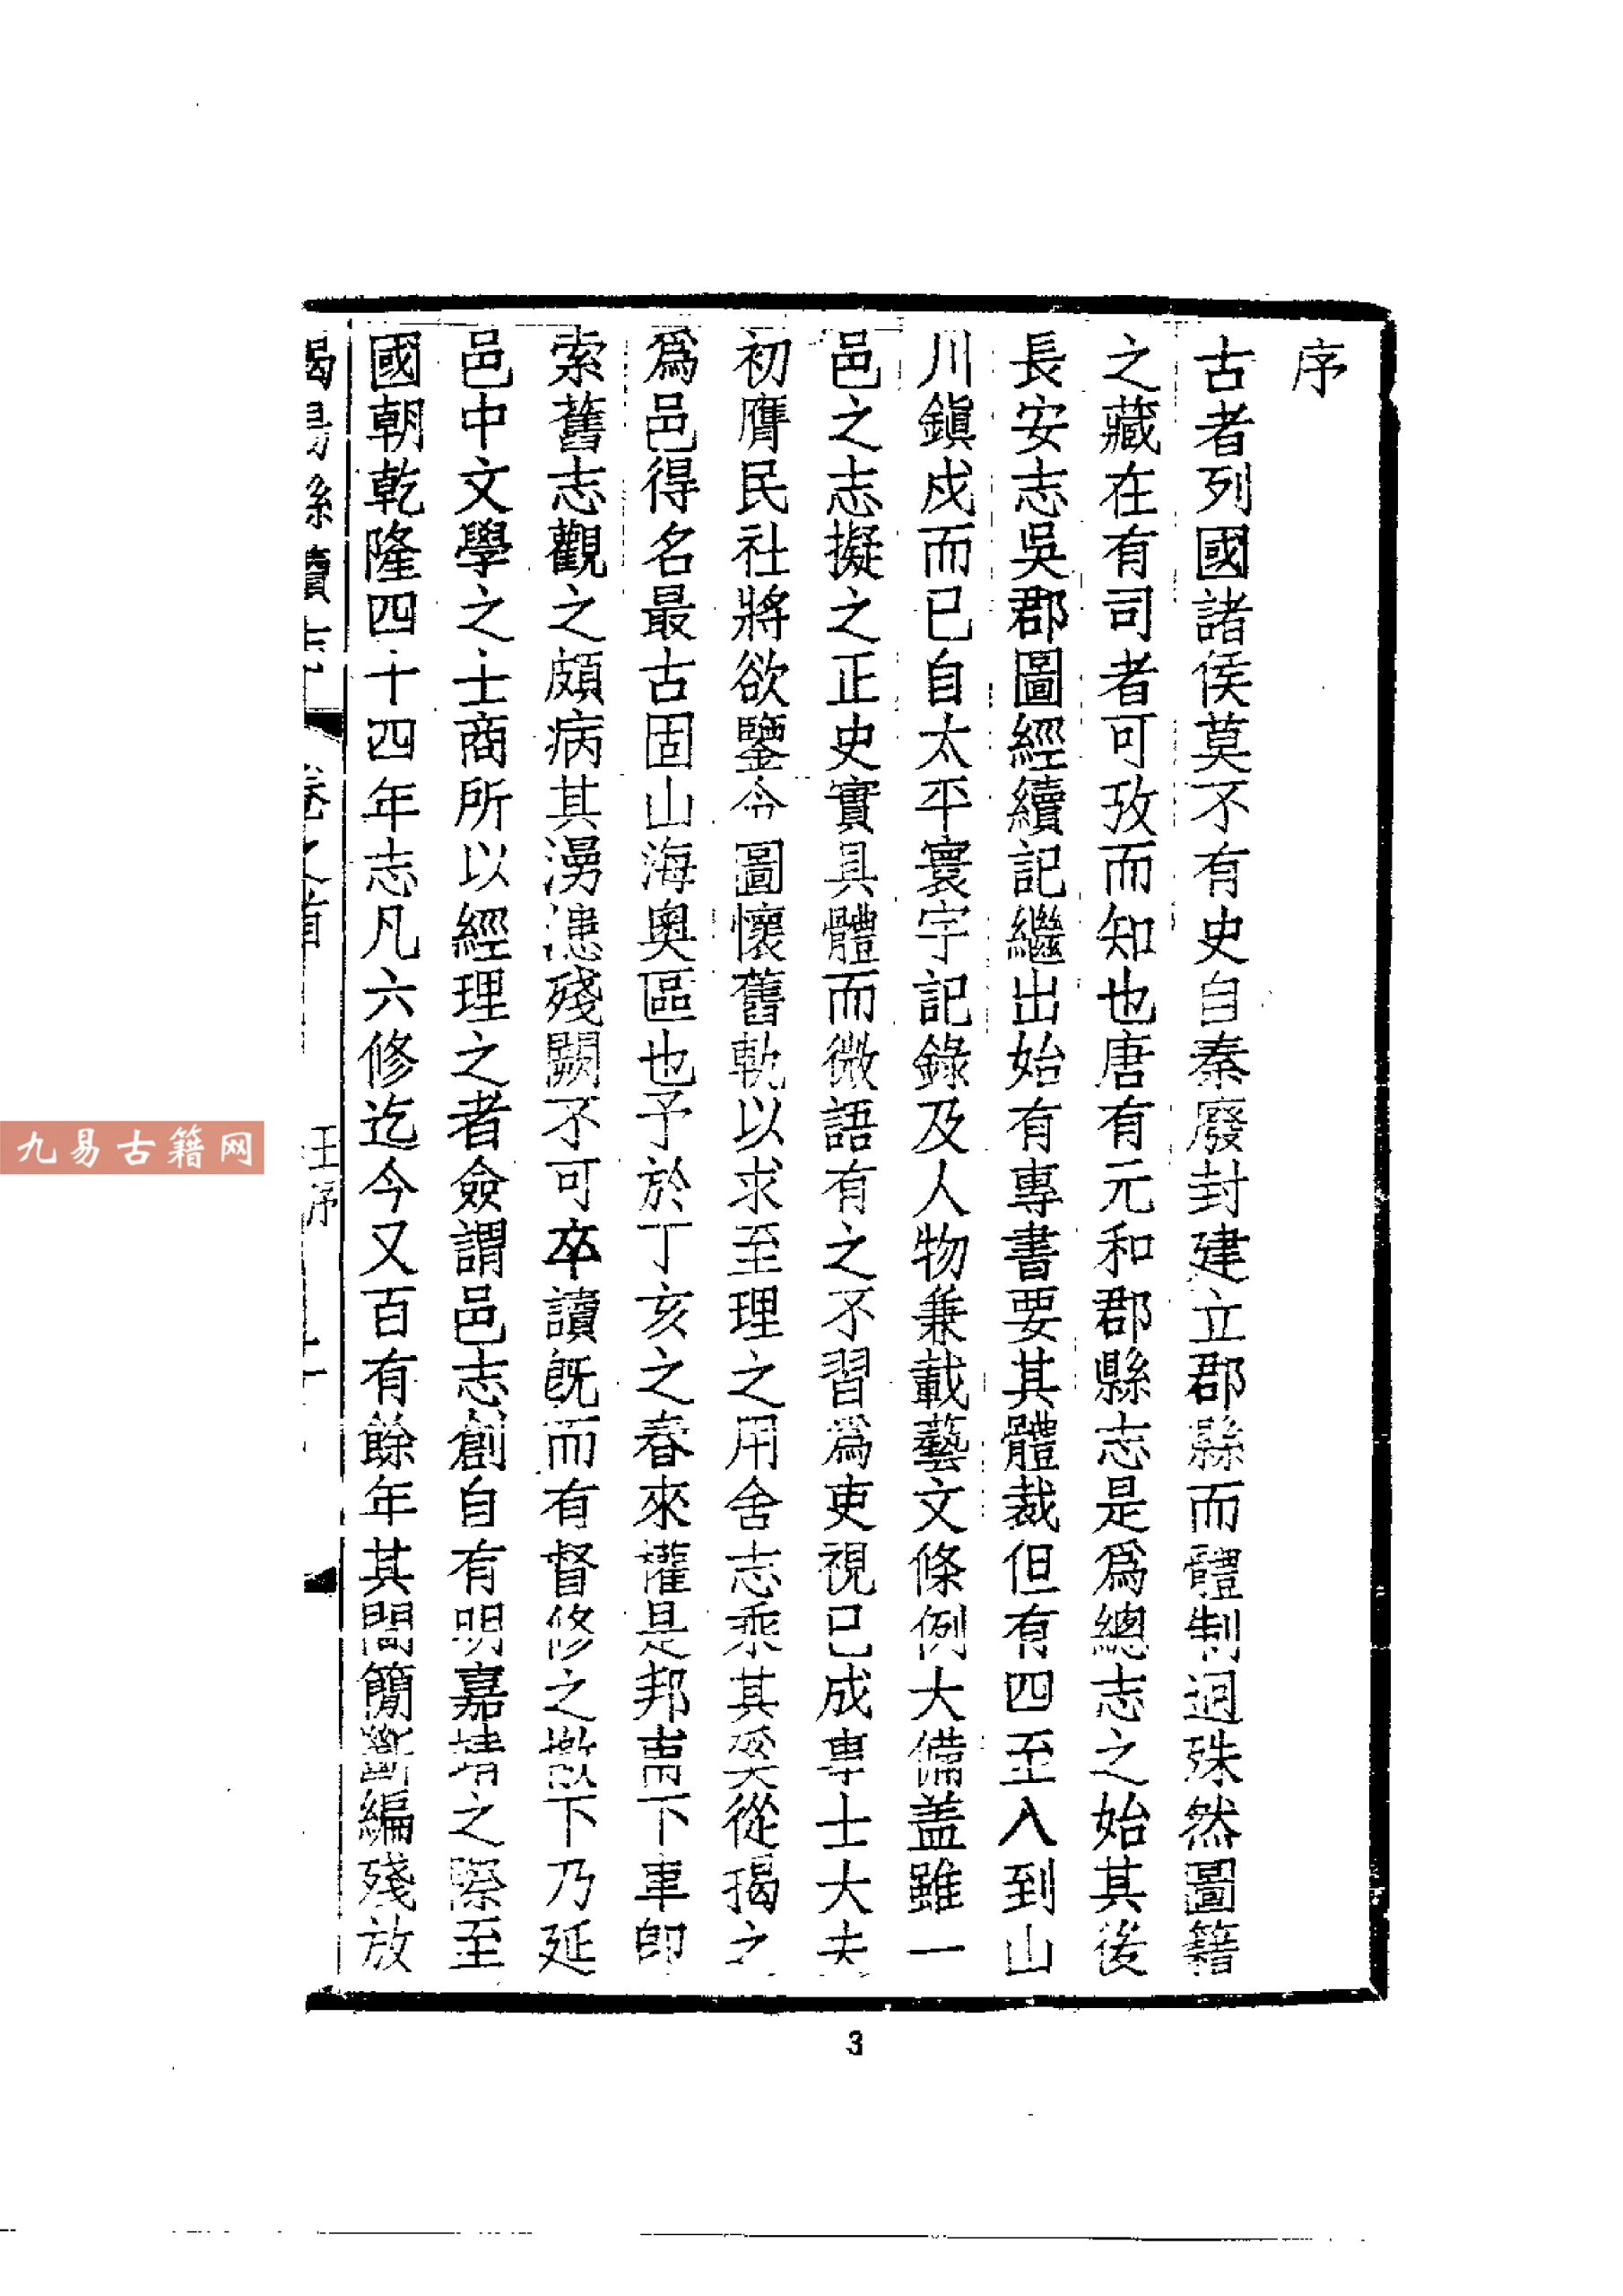 序
古者列國諸侯莫不有史自秦廢封建立郡縣而體制迥殊然圖籍
之藏在有司者可攷而知也唐有元和郡縣志是爲總志之始其後
長安志吳郡圖經續記繼出始有專書要其體裁但有四至入到山
川鎭戍而已自太平寰宇記錄及人物兼載藝文條例大備盖雖一
邑之志擬之正史實具體而微語有之不習爲吏視已成事士大夫
初膺民社將欲鑒今圖懷舊軌以求至理之用舍志乘其奚從揭之
爲邑得名最古固山海奧區也予於丁亥之春來權是邦甫下車即
索舊志觀之頗病其漫漶殘闕不可卒讀旣而有督修之檄下乃延
邑中文學之士商所以經理之者僉謂邑志創自有明嘉靖之際至
國朝乾隆四十四年志凡六修迄今又百有餘年其間簡斷編殘放
揭陽縣續志
卷之首
王序
一
3
九易古籍网